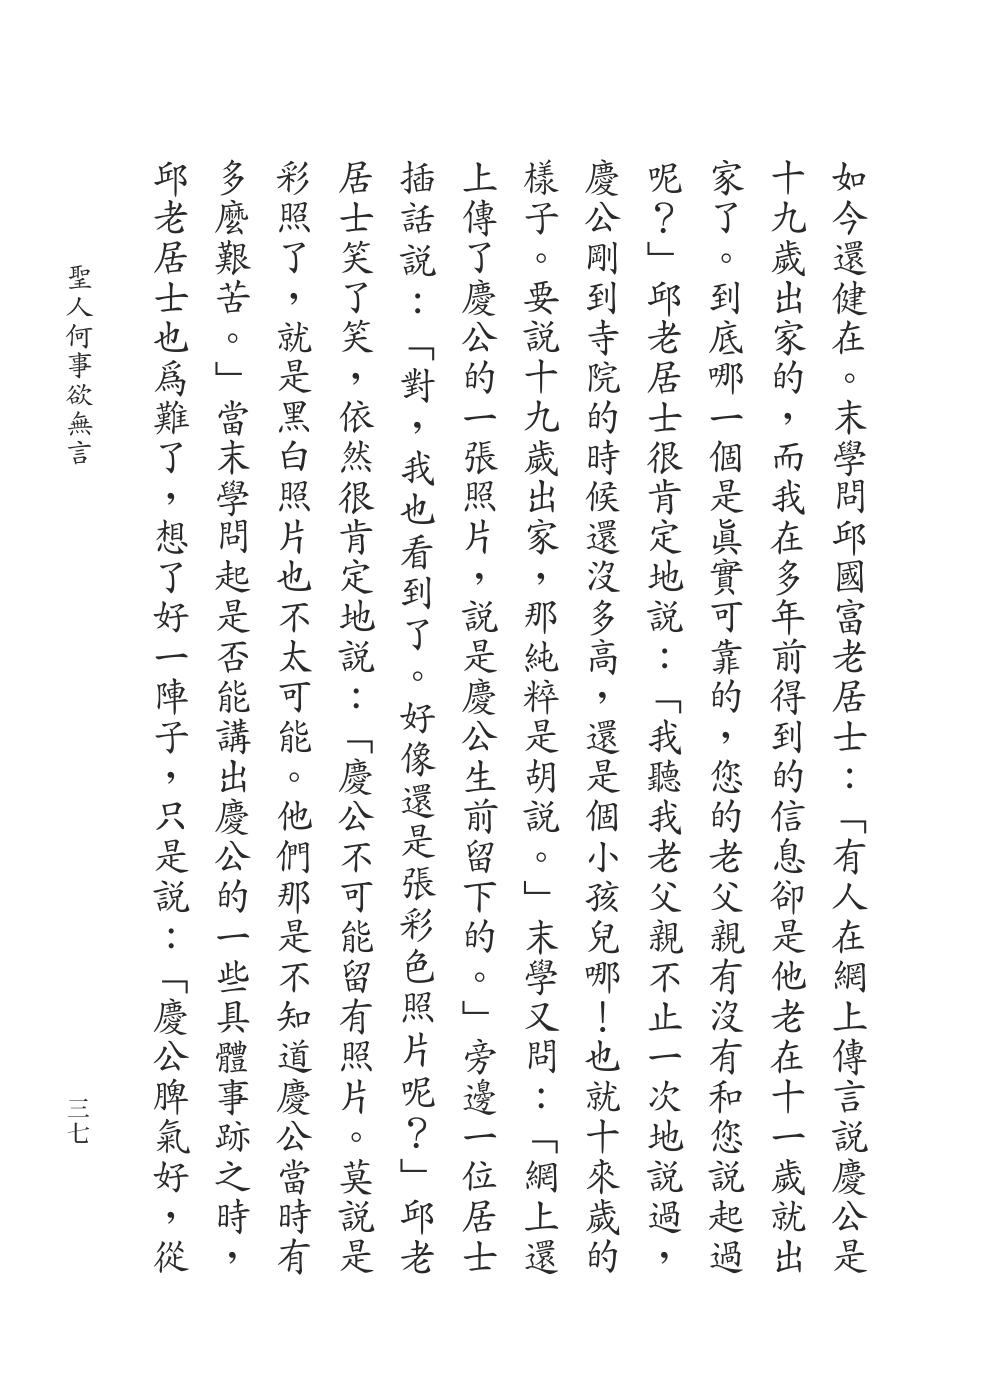 如今還健在。末學問邱國富老居士：「有人在網上傳言說慶公是
十九歲出家的，而我在多年前得到的信息卻是他老在十一歲就出
家了。到底哪一個是眞實可靠的，您的老父親有沒有和您說起過
呢？」邱老居士很肯定地說：「我聽我老父親不止一次地說過，
慶公剛到寺院的時候還沒多高，還是個小孩兒哪！也就十來歲的
樣子。要說十九歲出家，那純粹是胡說。」末學又問：「網上還
上傳了慶公的一張照片，說是慶公生前留下的。」旁邊一位居士
插話說：「對，我也看到了。好像還是張彩色照片呢？」邱老
居士笑了笑，依然很肯定地說：「慶公不可能留有照片。莫說是
彩照了，就是黑白照片也不太可能。他們那是不知道慶公當時有
多麼艱苦。」當末學問起是否能講出慶公的一些具體事跡之時，
邱老居士也爲難了，想了好一陣子，只是說：「慶公脾氣好，從
聖人何事欲無言
三七